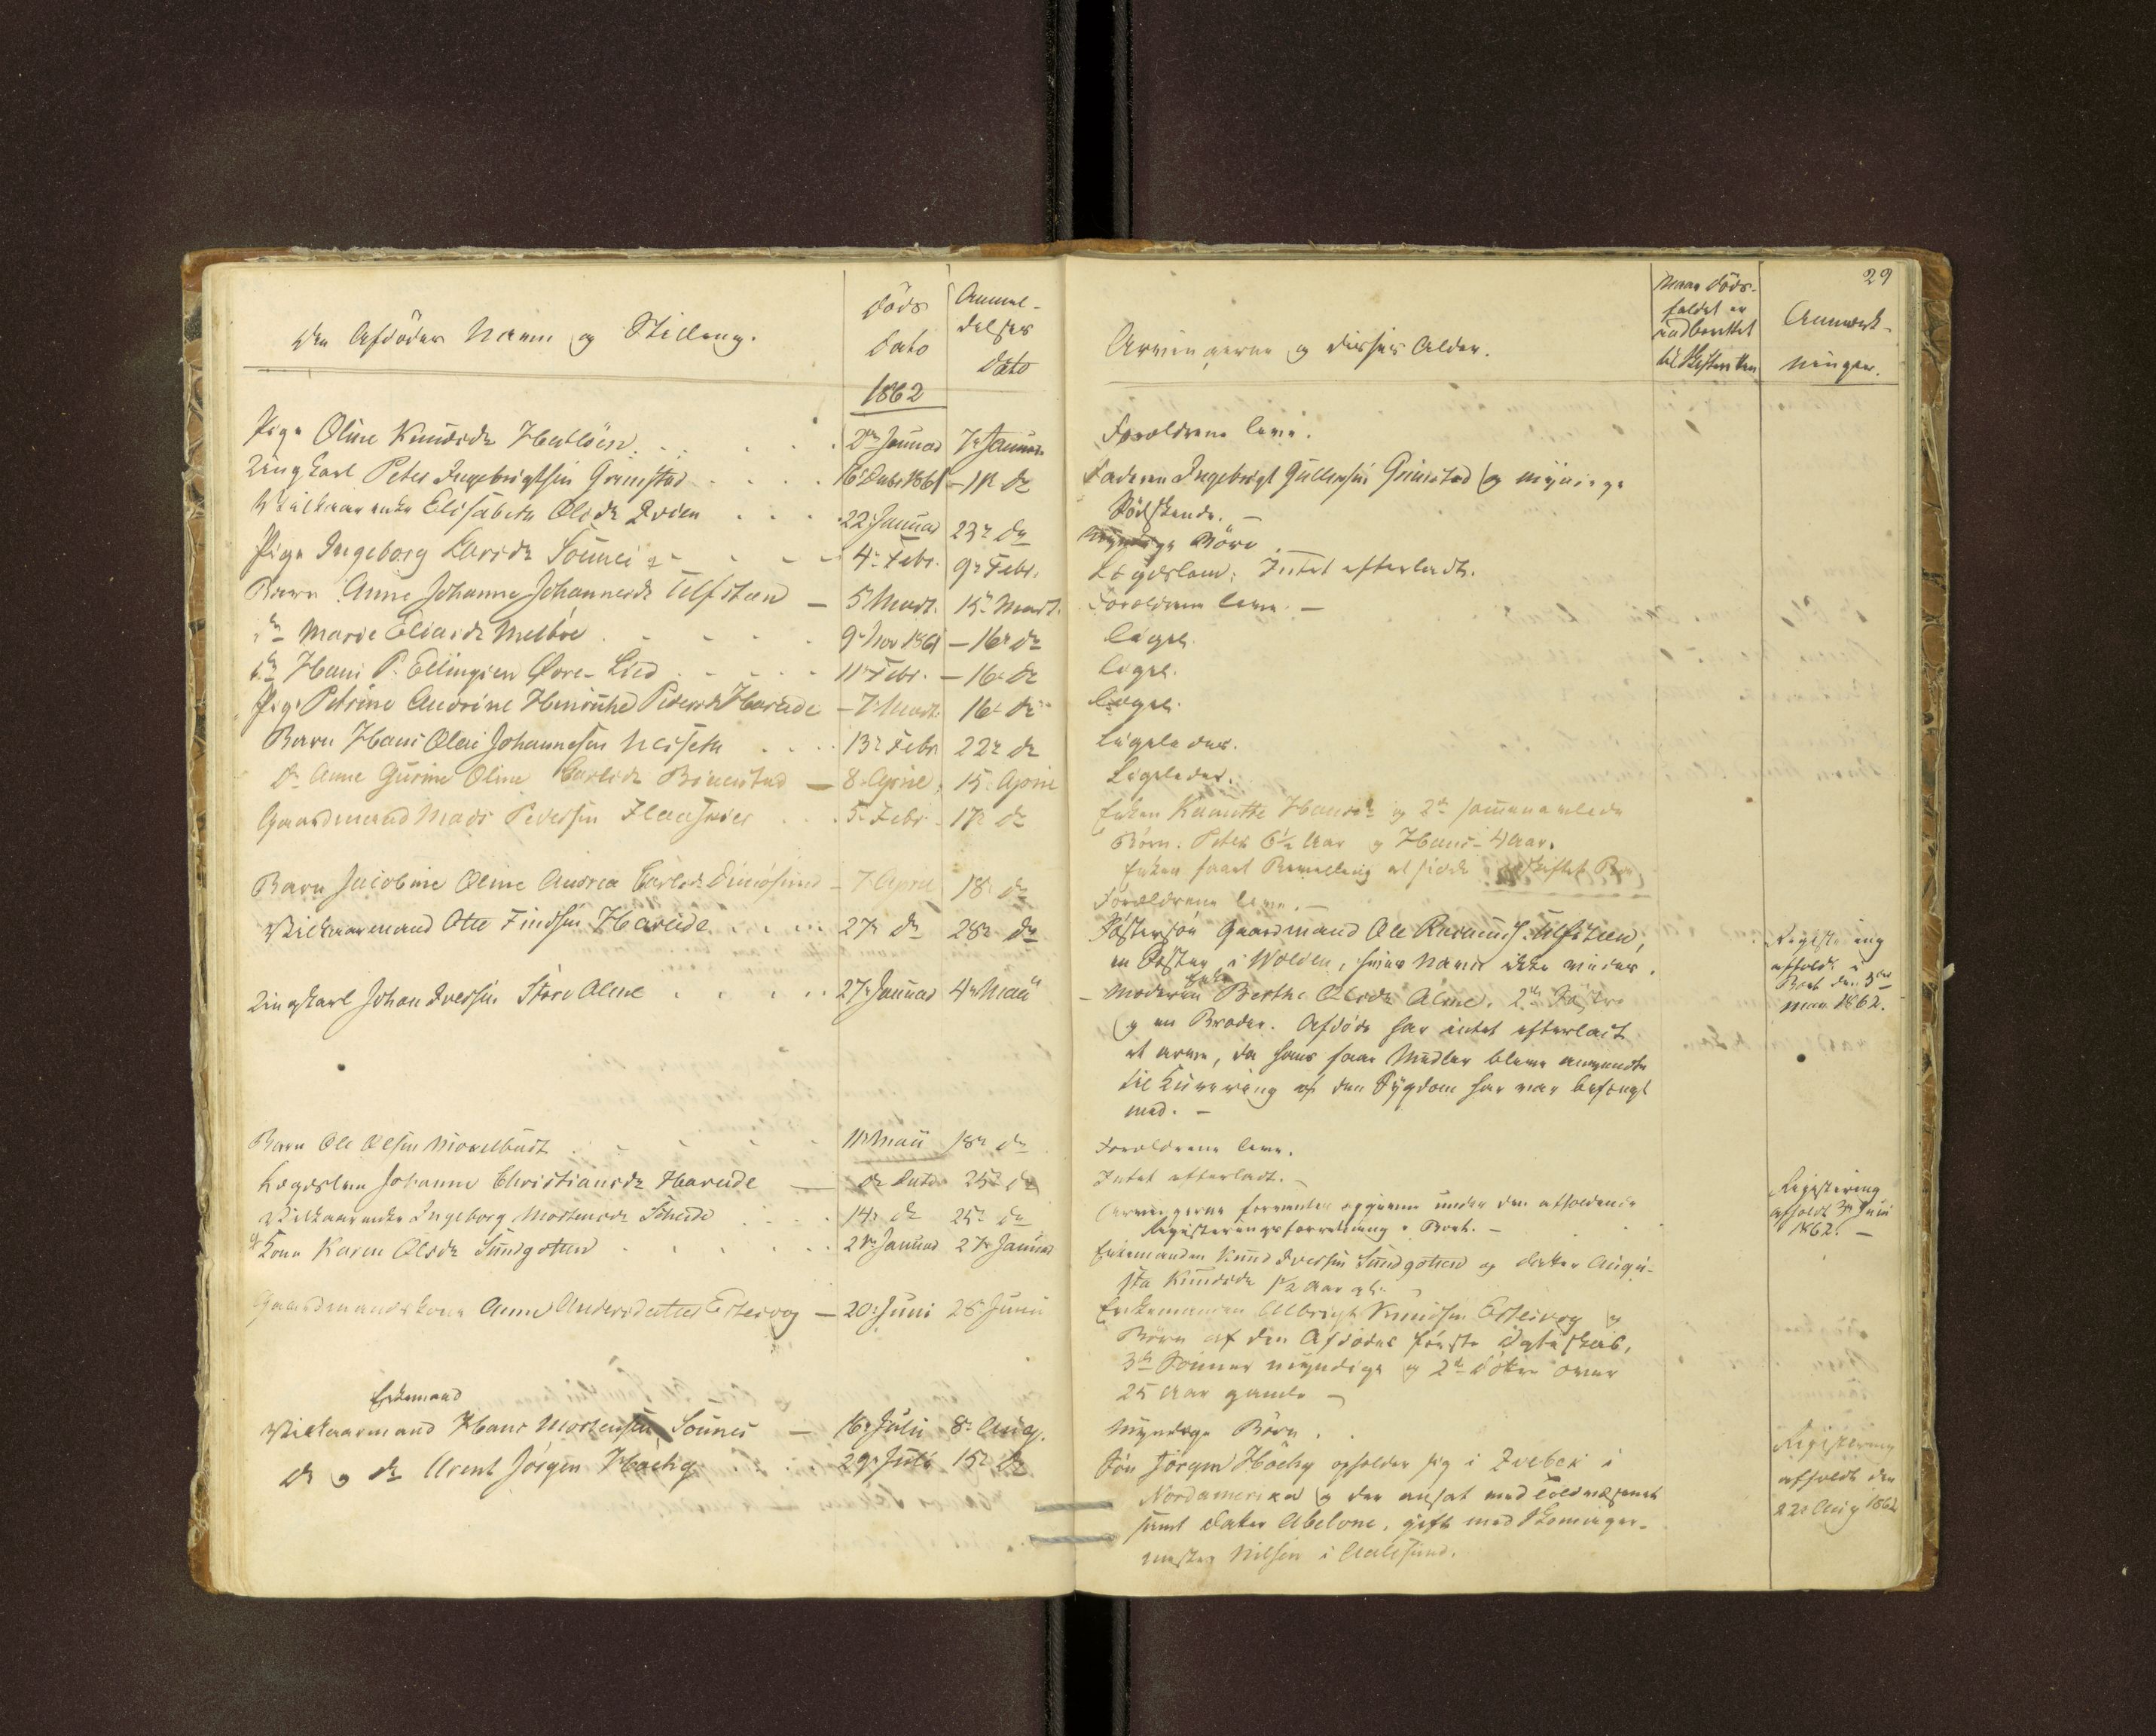 29
Den Afdødes Navn og Stilling.
Døds
Dato
Anmel-
delses
Dato
Arvingerne og disses Alder.
Naar Døds-
faldet er
indberettet
til Skifteretten
Anmærk-
ninger.
1862
Pige Oline Knudsdr Hatløen 2den Januar 7de Januar Forældrene leve.
Ungkarl Peter Ingebrigtsen Grimstad 16 Debr 1861 - 11te do Faderen Ingebrigt Grimstad og myndige
Sødskende. -
Vilkaarenke Elisabeth Olsdr 22 Januar 23de do Myndige Børn
Pige Ingeborg Larsdr Sounes 4de Febr. 9de Febr. Lægdslem; Intet efterladt.
Barn Anne Johanne Johannesdr Ulfsteen - 5 Marts. 15de Marts. Forældrene leve. -
do Marie Eliasdr Melbøe 9de Nov 1861 - 16de do ligel.
do Hans P. Ellingsen Øvre-Lied 11te Febr. - 16de do ligel.
Pige Petrine Andrine Hendrikke Pedersdr Hareide - 7de Marts 16de do ligel.
Barn Hans Olai Johannesen Neiseth 13de Febr 22de do Ligeledes.
do Anne Gurine Oline Carlsdr - 8de April 15de April Ligeledes.
Gaardmand Mads Pedersen Flaaskjer 5te Febr 17de do Enken Hansdr og 2de sammenavlede
Børn: Peter 6½ Aar og Hans 4 Aar.
Enken faaet Bevilling at sidde i uskiftet Bo
Barn Jacobine Oline Andrea Carlsdr Dimøsund - 7 April 18de do Forældrene leve. -
Vilkaarmand Otte Findsen Hareide 27de do 28de do Søstersøn Gaardmand Ole Rasmuss. Ulfsteen,
en Søster i Volden, hvis Navn ikke vides.
Registrering
afholdt i
Boet den 3die
Mai 1862.
Ungkarl Johan Iversen Store Alme 27de Januar 4de Maii - Moderen Enke Berthe Olsdr Alme. 2de Søstre
og en Broder. Afdøde har intet efterladt
at arve, da hans faa Midler bleve anvendte
til Kurering af den Sygdom han var befængt
med. -
Barn Ole Olsen 11te Maii 18de do Forældrene leve.
Lægdslem Johanne Christiansdr Hareide - do Dato 25de do Intet efterladt. -
Vilkaarenke Ingeborg Mortensdr 14de do 25de do Arvingerne formentes opgivne under den afholdende
Registreringsforretning i Boet. -
Registrering
afholdt 3de Juni
1862. -
Kone Karen Olsdr Sundgoten 21de Januar 27de Januar Enkemanden Knud Iversen Sundgoten og datter Augu-
sta Knudsdr 1½ Aar gl.
Gaardmandskone Anne Andersdatter Eltevog - 20de Juni 28de Juni Enkemanden Albrigt Knudsen og
Børn af den Afdødes første Ægteskab,
3de Sønner myndige og 2de Døtre over
25 Aar gamle -
Enkemand
Vilkaarmand Hans Mortensen Sounes - 16de Julii 8de Aug. Myndige Børn.
do og do Arent Jørgen Høehg 29de Julii 15de do Søn Jørgen Høehg opholder sig i Qvebek i
Nordamerika og der ansat ved Toldvæsenet
samt Datter Abelone, gift med Skomager-
mester Nilsen i Aalesund.
Registrering
afholdt den
22de Aug 1862